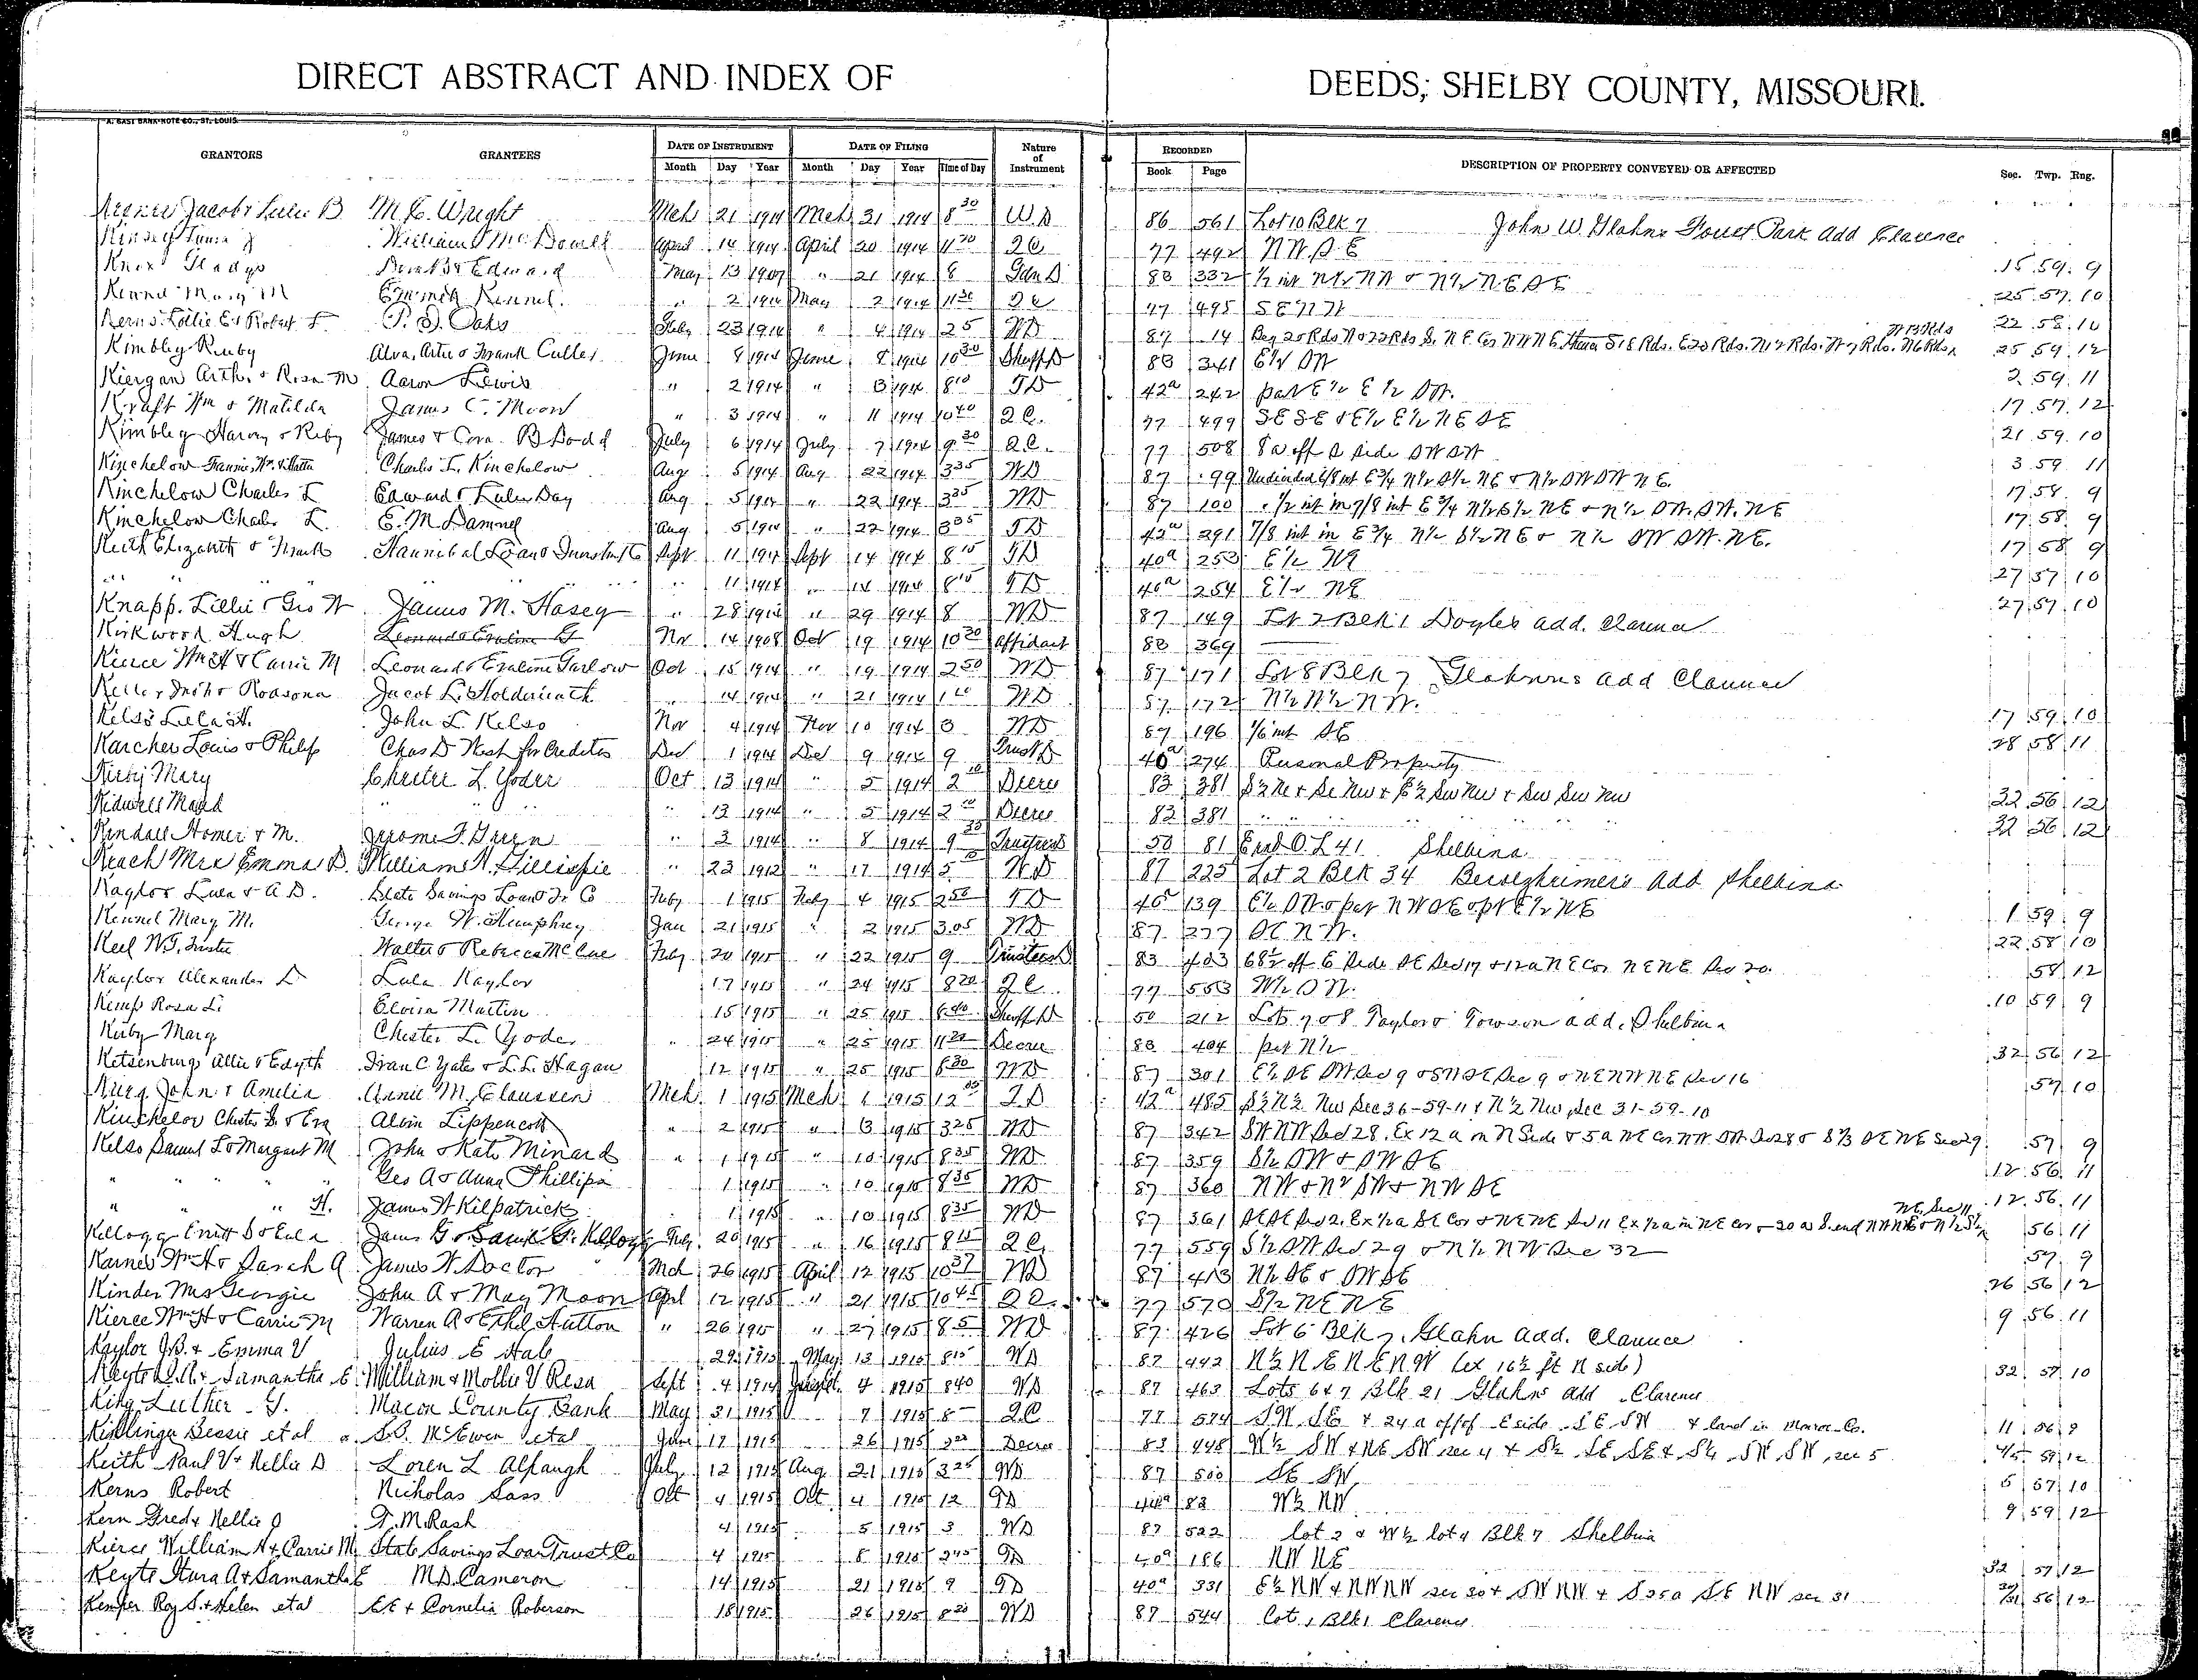 DIRECT ABSTRACT AND INDEX OF DEEDS, SHELBY COUNTY, MISSOURI.
GRANTORS GRANTEES DATE OF INSTRUMENT DATE OF FILING Nature of Instrument RECORDED DESCRIPTION OF PROPERTY CONVEYED OR AFFECTED Sec. Twp. Rng.
Month Day Year Month Day Year Time of Day Book Page
Jacob & Lulu B M. C. Wright Mch 21 1914 Mch 31 1914 8 30 W.D 86 561 Lot 10 Blk 7 John W. Glahns Forest Park Add Clarence
William McDowell April 14 1914 April 20 1914 11 20 Q C 77 492 N W S E 15 59 9
Knox Gladys Edward May 13 1907 " 21 1914 8 83 332 1/2 int N 1/2 N W & N 1/2 N E S E 25 57 10
Mary M Kennel " 2 1914 May 2 1914 11 30 Q C 77 495 S E N W 22 58 10
Kerns Lollie E & Robert F. P. D. Oaks Feby 23 1914 " 4 1914 2 5 WD 87 14 25 59 12
Kimbley Ruby Alva, Artie & Frank Culler June 8 1914 June 8 1914 10 30 Sheriff D 83 341 E 1/2 SW 2 59 11
Kiergan Arth. & Rosa M Aaron Lewis " 2 1914 " 3 1914 8 10 T D 42a 242 part E 1/2 E 1/2 SW. 17 57 12
Kraft Wm & Matilda James C. Moon " 3 1914 " 11 1914 10 40 Q C. 77 499 SE SE & E 1/2 E 1/2 NE SE 21 59 10
Kimbley Harvey & Ruby James & Cora B Dodd July 6 1914 July 7 1914 9 30 Q C. 77 508 8 a off S side SW SW 3 59 11
Kinchelow Fannie, Wm. Charles L. Kinchelow Aug 5 1914 Aug 22 1914 3 35 WD 87 99 Undivided 6/8 int E 3/4 N 1/2 S 1/2 NE & N 1/2 SW SW NE. 17 58 9
Kinchelow Charles L Edward & Lulu Day Aug 5 1914 " 22 1914 3 35 WD 87 100 1/2 int in 7/8 int E 3/4 N 1/2 S 1/2 NE & N 1/2 SW. SW. NE 17 58 9
Kinchelow Charles L. E. M. Damrel Aug 5 1914 " 22 1914 3 35 T D 42a 291 7/8 int in E 3/4 N 1/2 S 1/2 NE & N 1/2 SW SW. NE. 17 58 9
Keith Elizabeth & Frank Hannibal Loan & Investmt Co Sept 11 1914 Sept 14 1914 8 10 T D 40a 253 E 1/2 NE 27 57 10
" " " " 11 1914 " 14 1914 8 10 T D 40a 254 E 1/2 NE 27 57 10
Knapp. Lillie & Geo W James M. Hasey " 28 1914 " 29 1914 8 WD 87 149 Lot 2 Blk 1 Doyles add. Clarence
Kirkwood Hugh Nov 14 1908 Oct 19 1914 10 30 Affidavit 83 369
Kierce Wm H & Carrie M Leonard & Eveline Garlow Oct 15 1914 " 19 1914 2 50 WD 87 171 Lot 8 Blk 7 Glahns add Clarence
Keller John & Roasona Jacob L. Holderieath 14 1914 " 21 1914 1 WD 87 172 N 1/2 N 1/2 N W. 17 59 10
Kelso Lula H. John L. Kelso Nov 4 1914 Nov 10 1914 3 WD 87 196 1/6 int SE 28 58 11
Karcher Louis & Philip Chas D West for Creditors Dec 1 1914 Dec 9 1914 9 Trust D 40a 274 Personal Property
Kirby Mary Chester L. Yoder Oct 13 1914 " 5 1914 2 10 Decree 83 381 S 1/2 Ne & Se Nw & E 1/2 Sw Nw & Sw Sw Nw 32 56 12
Kidwell Maud " " " 13 1914 " 5 1914 2 10 Decree 83 381 " " " 32 56 12
Kendall Homer & M. Jerome F. Green " 3 1914 " 8 1914 9 35 Trustees 50 81 O. L 41 Shelbina
Keach Mrs Emma B. William H. Gillispie " 23 1912 " 17 1914 5 WD 87 225 Lot 2 Blk 34 Add Shelbina
Kaylor Lula & A D. State Savings Loan & Tr. Co Feby 1 1915 Feby 4 1915 2 50 T D 40a 139 E 1/2 SW & part NW SE & pt E 1/2 NE 1 59 9
Kennel Mary M. George W. Humphrey Jan 21 1915 " 2 1915 3.05 WD 87 277 S E N W. 22 58 10
Keel W.T. Trustee Walter & Rebecca McCue Feby 20 1915 " 22 1915 9 Trustees D 83 403 68 1/2 off E side SE Sec 17 & 12 a NE Cor NE NE Sec 20. 58 12
Kaylor Alexander D Lula Kaylor 17 1915 " 24 1915 8 20 Q C 77 553 W 1/2 S W. 10 59 9
Kemp Rosa L. Elvira Martin 15 1915 " 25 1915 Sheriff D 50 212 Lots 7 & 8 Taylor & Towson add. Shelbina
Kirby Mary Chester L. Yoder " 24 1915 " 25 1915 11 20 Decree 83 404 part N 1/2 32 56 12
Ketsenburg Allie & Edyth Ivan C Yates & L.L. Hagan 12 1915 " 25 1915 8 30 WD 87 301 E 1/2 SE SW Sec 9 & SW SE Sec 9 & NE NW NE Sec 16 57 10
Krieg John & Amelia Annie M. Claussen Mch. 1 1915 Mch 1 1915 12 T D 42a 485 S 1/2 N 1/2 Nw Sec 36-59-11 & N 1/2 Nw, Sec 31-59-10
Kinchelow Chester & Eva Alvin Lippencott " 2 1915 " 3 1915 3 25 WD 87 342 SW NW Sec 28. Ex 12 a on N Side & 5 a NE Cor NW SW Sec 28 & S 1/3 SE NE Sec 29 57 9
Kelso Samuel L & Margaret M John & Kate Minard " 1 1915 " 10 1915 8 35 WD 87 359 S 1/2 SW & SW SE 12 56 11
" " " Geo A & Anna Phillips 1 1915 " 10 1915 8 35 WD 87 360 NW & N 1/2 SW & NW SE 12 56 11
" " " H. James W Kilpatrick 1 1915 " 10 1915 8 35 WD 87 361 56 11
Kellogg Emitt D & Eula James G & Kellogg Feby. 20 1915 " 16 1915 8 15 Q C. 77 559 S 1/2 SW Sec 29 & N 1/2 NW Sec 32 57 9
Karnes Wm H & Sarah A James W. Doctor Mch 26 1915 April 12 1915 10 37 WD 87 413 N 1/2 SE & SW SE 26 56 12
Kinder Mrs Georgie John A & May Moon Apl 12 1915 " 21 1915 10 45 Q C. 77 570 S 1/2 NE NE 9 56 11
Kierce Wm H & Carrie M Warren A & Ethel Hutton " 26 1915 " 27 1915 8 5 WD 87 426 Lot 6 Blk 7. Glahn Add. Clarence
Kaylor J.B. & Emma V Julius E Hale 29 1915 May 13 1915 8 15 WD 87 442 N 1/2 N E N E N W (ex 16 1/2 ft N side) 32 57 10
Keyte & Samantha E. William & Mollie V Resa Sept 4 1914 4 1915 8 40 WD 87 463 Lots 6 & 7 Blk 21 Glahns add Clarence
King Luther G. Macon County Bank May 31 1915 7 1915 8 Q C 77 574 SW SE & 24 a off of E side SE SW & land in Monroe Co. 11 56 9
Kislinger Bessie et al S.B. McEwen et al June 17 1915 26 1915 Decree 83 448 W 1/2 SW & NE SW sec 4 & S 1/2 SE SE & SW SW sec 5 4/5 59 12
Keith Paul V & Nellie D Loren L Alspaugh July 12 1915 Aug 21 1915 3 25 WD 87 500 SE SW 5 57 10
Kerns Robert Nicholas Sass Oct 4 1915 Oct 4 1915 12 TD 44a 83 W 1/2 NW 9 59 12
Kern Fred & Nellie O F. M. Rash 4 1915 5 1915 3 WD 87 522 lot 3 & W 1/2 lot 4 Blk 7 Shelbina
Kierce William H & Carrie M State Savings Loan & Trust Co 4 1915 8 1915 2 45 TD 40a 186 NW NE 32 57 12
Keyte Itura A & Samantha E M.D. Cameron 14 1915 21 1915 9 TD 40a 331 E 1/2 NW & NW NW sec 30 & SW NW & S 25 a SE NW sec 31 30/31 56 12
Kemper Roy S. & Helen et al E E & Cornelia Roberson 18 1915 26 1915 8 30 WD 87 544 Lot 1 Blk 1 Clarence